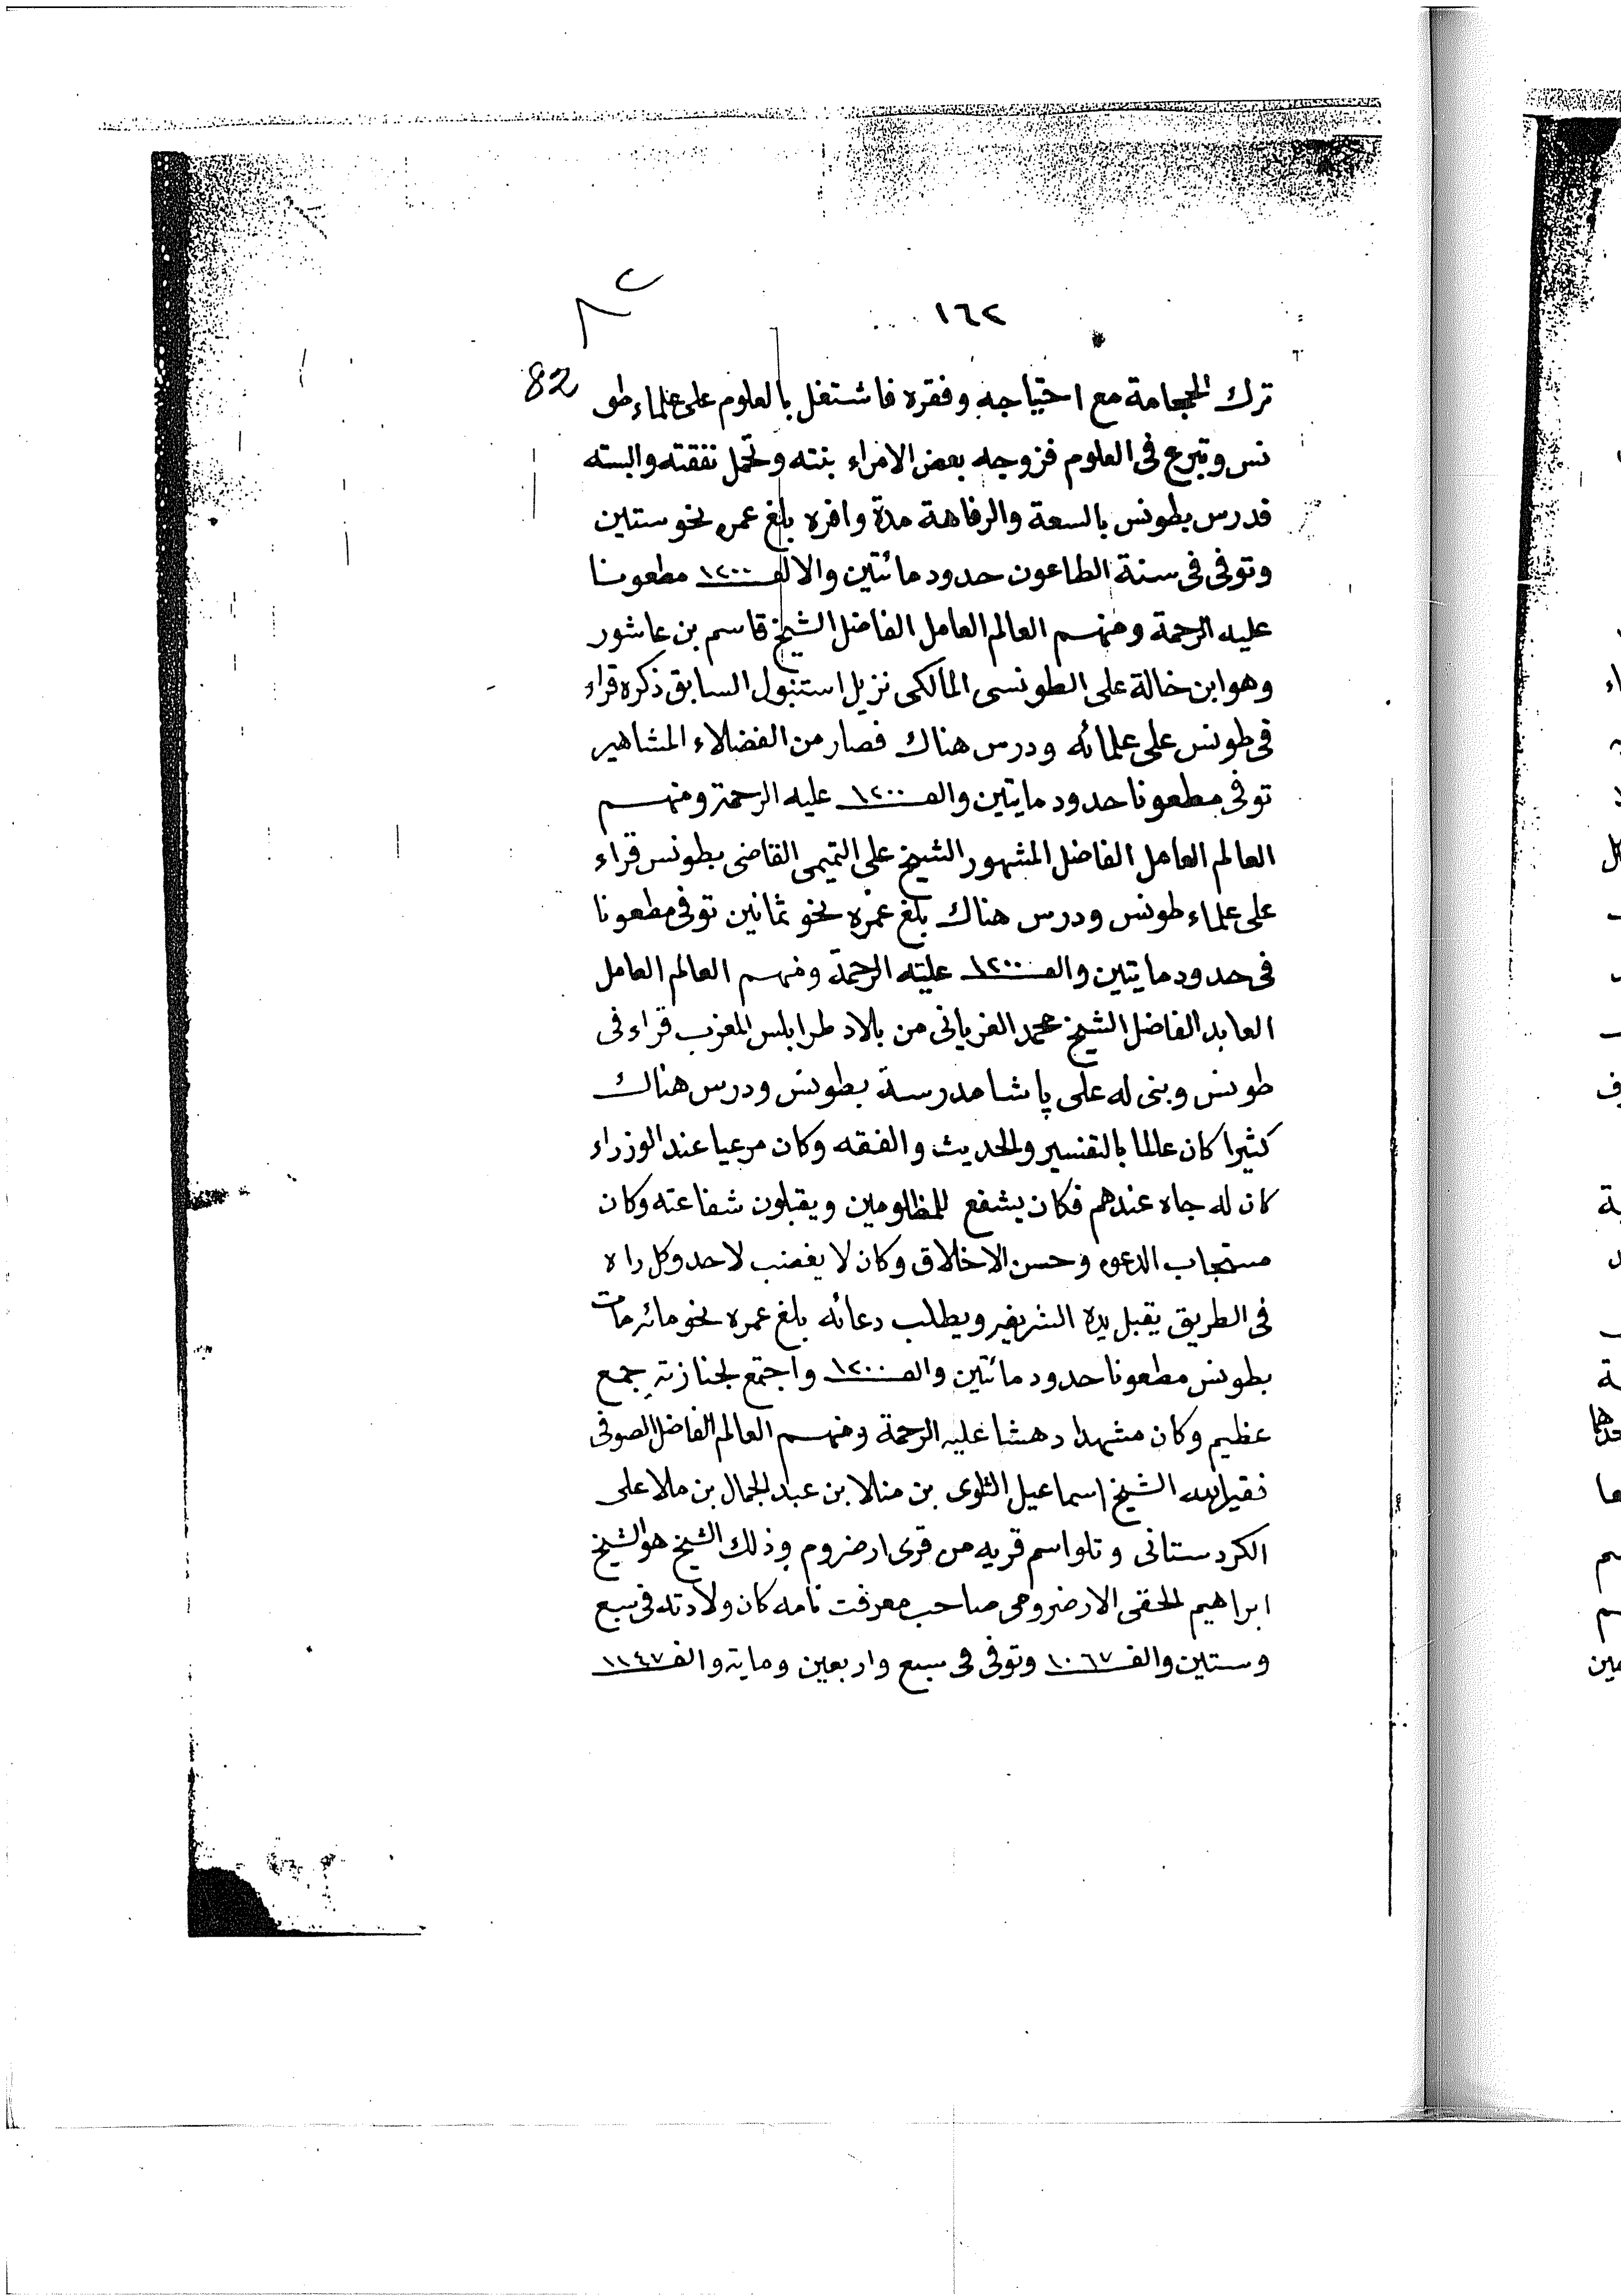 ٨٢
١٦٢
82
ترك الحجامة مع احتياجه وفقره فاشتغل بالعلوم على علماء طو
نس وتبرع فى العلوم فزوجه بعض الامراء بنته وتحمل نفقته والبسته
فدرس بطونس بالسعة والرفاهة مدة وافره بلغ عمره نحو ستين
وتوفى فى سنة الطاعون حدود مائتين والالف ١٢٠٠ مطعونا
عليه الرحمة ومنهم العالم العامل الفاضل الشيخ قاسم بن عاشور
وهو ابن خالة على الطونسى المالكى نزيل استنبول السابق ذكره قراء
فى طونس على علمائه ودرس هناك فصار من الفضلاء المشاهير
توفى مطعونا حدود مايتين والف ١٢٠٠ عليه الرحمة ومنهم
العالم العامل الفاضل المشهور الشيخ على التميمى القاضى بطونس قراء
على علماء طونس ودرس هناك بلغ عمره نحو ثمانين توفى مطعونا
فى حدود مايتين والف ١٢٠٠ عليه الرحمة ومنهم العالم العامل
العابد الفاضل الشيخ محمد الغريانى من بلاد طرابلس المغرب قراء فى
طونس وبنى له على پاشا مدرسة بطونس ودرس هناك
كثيرا كان عالما بالتفسير والحديث والفقه وكان مرعيا عند الوزراء
كان له جاه عندهم فكان يشفع للمظلومين ويقبلون شفاعته وكان
مستجاب الدعوه وحسن الاخلاق وكان لا يغضب لاحد وكل راه
فى الطريق يقبل يده الشريفه ويطلب دعائه بلغ عمره نحو مائه مات
بطونس مطعونا حدود مائتين والف ١٢٠٠ واجتمع لجنازته جمع
عظيم وكان مشهدا دهشا عليه الرحمة ومنهم العالم الفاضل الصوفى
فقير الله الشيخ اسماعيل التلوى بن منلا بن عبد الجمال بن ملا على
الكردستانى وتلو اسم قريه من قرى ارضروم وذلك الشيخ هو الشيخ
ابراهيم الحقى الارضرومى صاحب معرفت نامه كان ولادته فى سبع
وستين والف ١٠٦٧ وتوفى فى سبع واربعين ومايه والف ١١٤٧